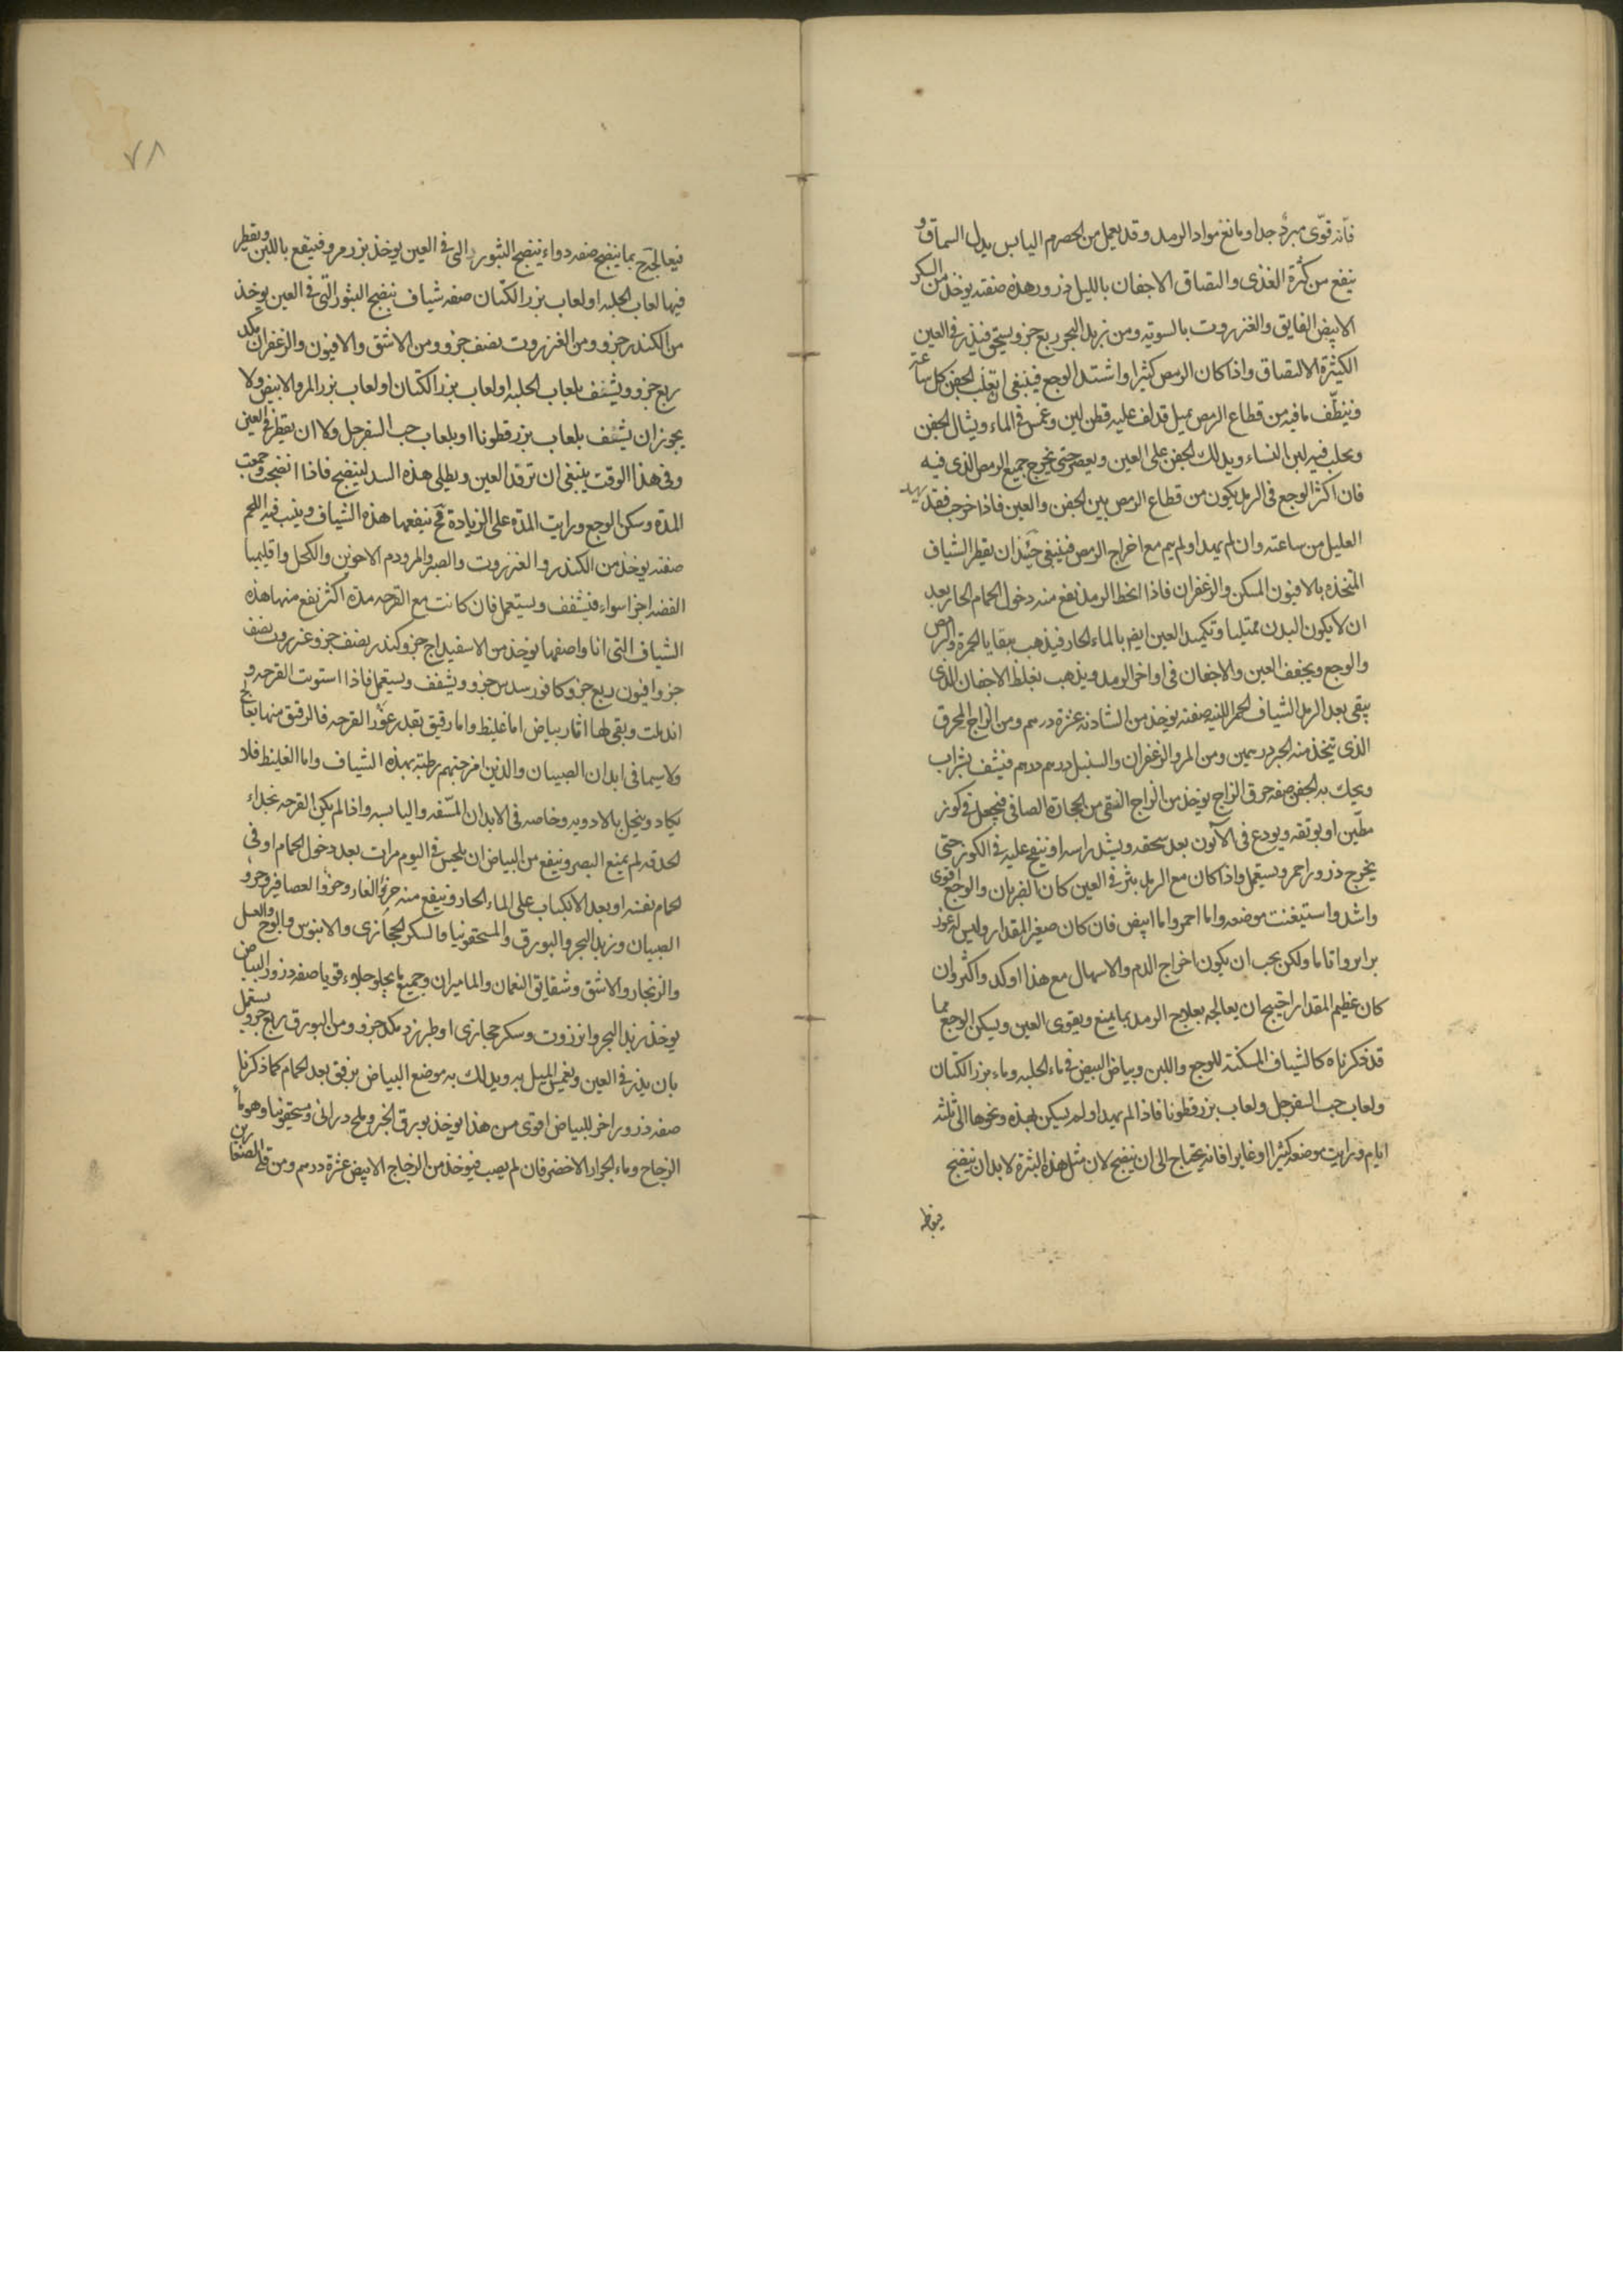 فانه قوّى مبرد جدا ومانع مواد الرمد وقد يعمل من الحصرم اليابس بدل السماق و
ينفع من كثرة الغذى والتصاق الاجفان بالليل ذرور هذه صفته يوخذ من السكر
الابيض الفايق والعنزروت بالسويه ومن زبد البحر ربع جزو ويسحق فيذر فى العين
الكثيرة الالتصاق واذا كان الرمص كثيرا واشتد الوجع فينبغى ان تقلب الجفن كل ساعة
وينظّف ما فيه من قطاع الرمص بميل قد لف عليه قطن لين وغمس فى الماء ويشال الجفن
ويحلب فيه لبن النساء ويدلك الجفن على العين ويعصر حتى يخرج جميع الرمص الذى فيه
فان اكثر الوجع فى الرمد يكون من قطاع الرمص بين الجفن والعين فاذا خرج فقد يهدا
العليل من ساعته وان لم يهدا ولم يم مع اخراج الرمص فينبغى حينئذ ان يقطر الشياف
المتخذه بالافيون المسكن والزعفران فاذا انحط الرمد نفع منه دخول الحمام الحار بعد
ان لا يكون البدن ممتليا وتكميد العين ايضا بالماء الحار فيذهب ببقايا الحمرة والرمص
والوجع ويجفف العين والاجفان فى اواخر الرمد ويذهب بغلظ الاجفان الذى
يبقى بعد الرمد الشياف الاحمر اللينه صفته يوخذ من الشادنه عشرة درهم ومن الزاج المحرق
الذى تتخذ منه الحبر درهمين ومن المر والزعفران والسنبل درهم درهم فيشف بشراب
ويحك به الجفن صفه حرق الزاج يوخذ من الزاج النقى من الحجارة الصافى فيجعل فى كوز
مطين او بوتقه ويودع فى الاتون بعد سحقه ويشد راسه او ينفخ عليه فى الكور حتى
يخرج ذرور احمر ويستعمل واذا كان مع الرمد بثر فى العين كان الضربان والوجع اقوى
واشد واستبغنت موضعه واما احمر واما ابيض فان كان صغير المقدار وليس له غور
برا برواقاما ولكن يجب ان يكون اخراج الدم والاسهال مع هذا اوكد واكثر وان
كان عظيم المقدار احتيج ان يعالجه بعلاج الرمد بما يمنع ويقوى العين ويسكن الوجع مما
قد ذكرناه كالشياف المسكنة للوجع واللبن وبياض البيض فى ماء الحلبه وماء بزر الكتان
ولعاب حب السفرجل ولعاب بزر قطونا فاذا لم يهدا ولم يسكن بهذه ونحوها الى ثلثه
ايام ورايت موضعه كثيرا او غايرا فانه يحتاج الى ان ينضج لان مثل هذه البثرة لا بد ان ينضج
فيعالج ح بما ينضج صفه دواء ينضج البثور التى فى العين يوخذ بزر مرو فينقع باللبن ويقطر
فيها لعاب الحلبه او لعاب بزر الكتان صفه شياف ينضج البثور التى فى العين يوخذ
من الكندر جزو ومن العنزروت نصف جزو ومن الاشق والافيون والزعفران مكد
ربع جزو ويشفف بلعاب الحلبه او لعاب بزر الكتان او لعاب بزر المرو الابيض ولا
يجوز ان يشفف بلعاب بزر قطونا او بلعاب حب السفرجل ولا ان يقطر فى العين
وفى هذا الوقت ينبغى ان ترقد العين ويطلى هذه السد لينضج فاذا انضجت وجمعت
المدة وسكن الوجع ورايت المدة على الزيادة فح ينفعها هذه الشياف وينبت فيه اللحم
صفته يوخذ من الكندر والعنزروت والصبر والمر ودم الاخوين والكحل واقليميا
الفضه اجزا سواء فيشفف ويستعمل فان كانت مع القرحه مدة اكثر نفع منها هذه
الشياف التى انا واصفها يوخذ من الاسفيداج جزو كندر نصف جزو عنزروت نصف
جزو افيون ربع جزو كافور سدس جزو ويشفف ويستعمل فاذا استوت القرحه و
اندملت وبقى لها اثار بياض اما غليظ واما رقيق بقدر غور القرحه فالرقيق منها يعالج
ولا سيما فى ابدان الصبيان والذين امزجتهم رطبته بهذه الشياف واما الغليظ فلا
يكاد ينحل بالادويه وخاصه فى الابدان المسنه واليابسه واذا لم يكن القرحه بحذاء
الحدقه لم يمنع البصر وينفع من البياض ان يلحس فى اليوم مرات بعد دخول الحمام او فى
الحمام نفسه او بعد الانكباب على الماء الحار وينفع منه خرؤ الفار وخرؤ العصافير وخرؤ
الصبيان وزبد البحر والبورق والمسحقونيا والسكر الحجازى والابنوس والوج والعسل
والزنجار والاشق وشقايق النعمان والماميران وجميع ما يجلو جلوء قويا صفه ذرور البياض
يوخذ زبد البحر وانزروت وسكر حجازى او طبرزد مكد جزو ومن البورق ربع جزو يستعمل
بان يذر فى العين ويغمس الميل به ويدلك به موضع البياض برفق بعد الحمام كما ذكرنا
صفه ذرور اخر للبياض اقوى من هذا يوخذ بورق الخبز وملح درانى ومسحقونيا وهو ماء
الزجاج وماء الجرار الاخضر فان لم يصب فيوخذ من الزجاج الابيض عشرة درهم ومن قلى